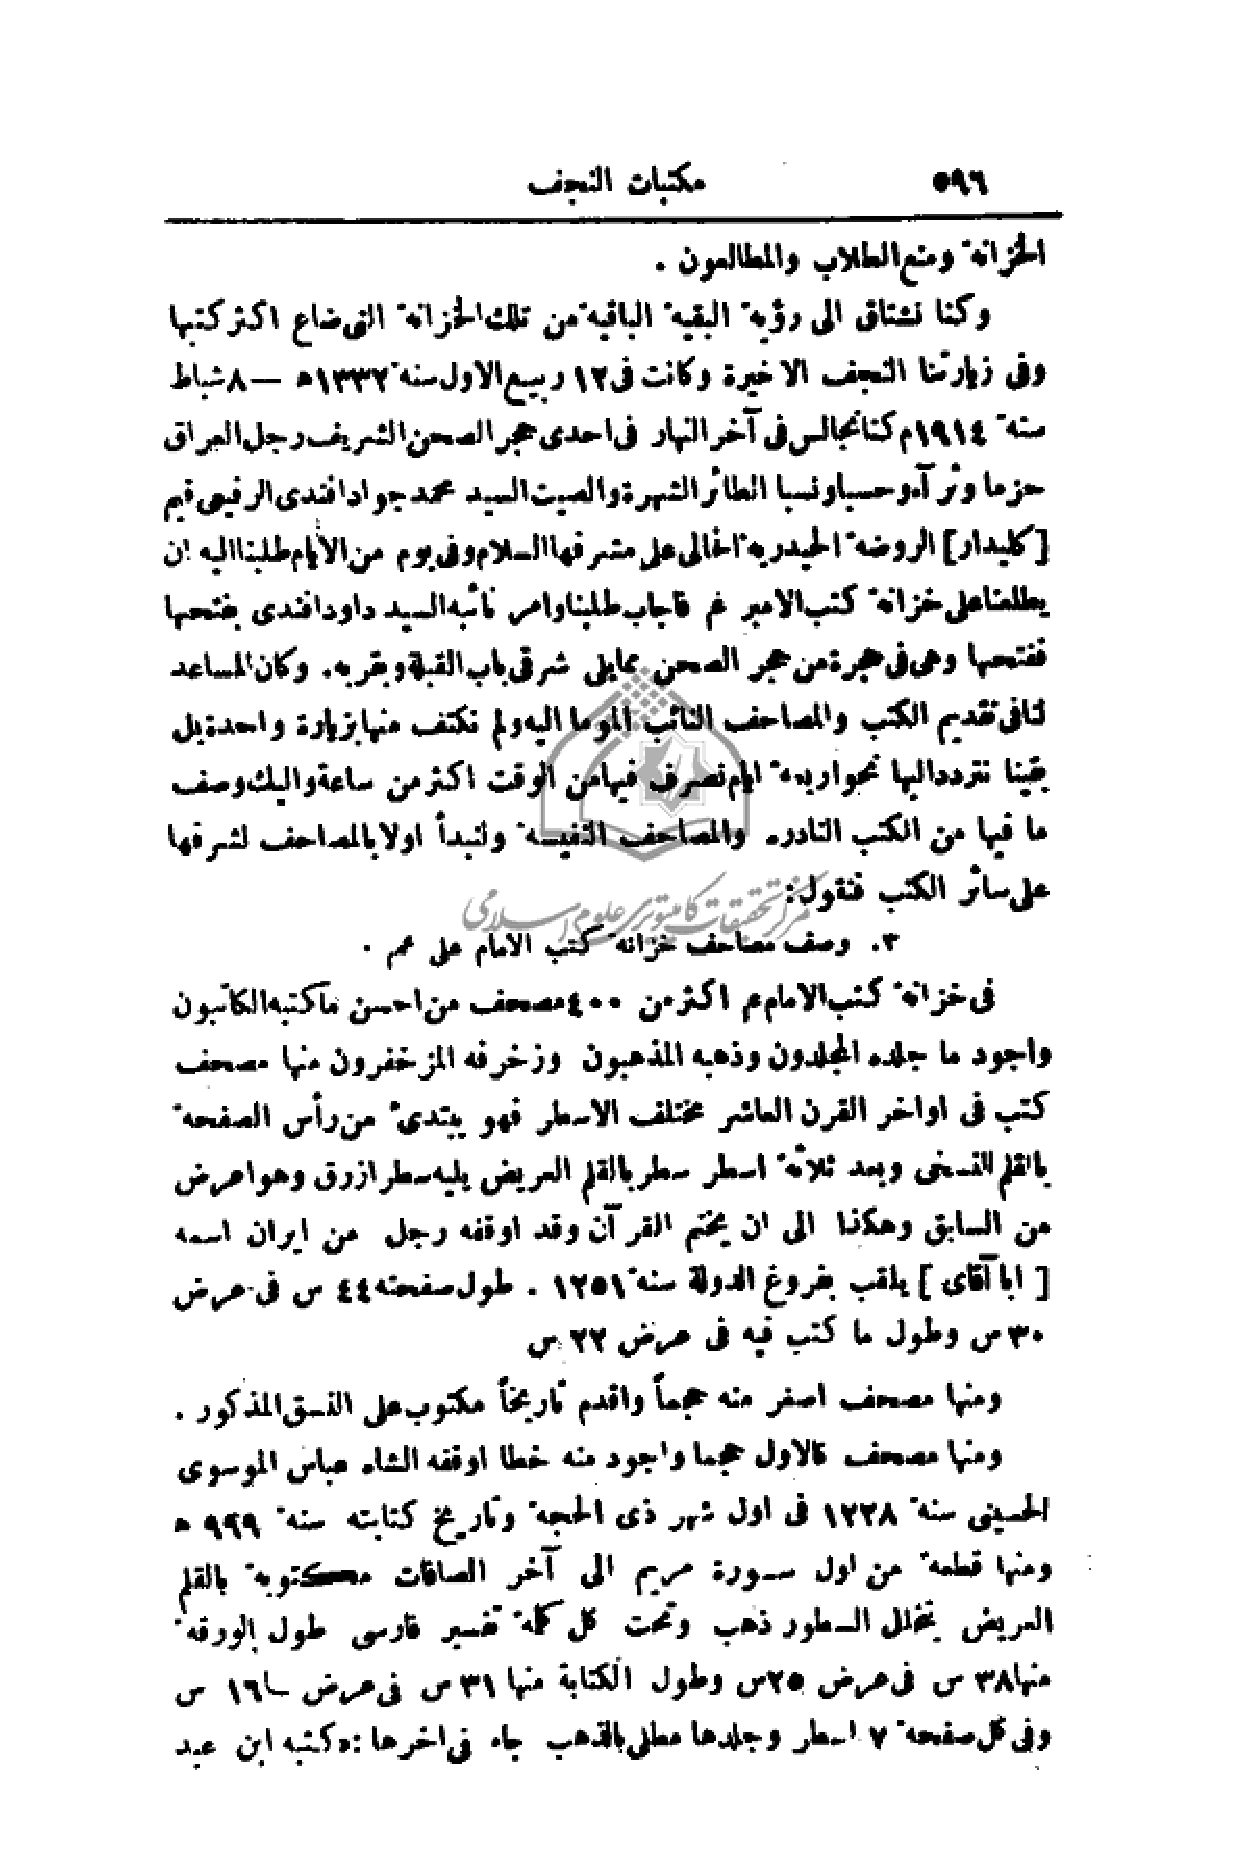 ٥٩٦ مكتبات النجف
الخزانة ومنع الطلاب والمطالعون .
وكنا نشتاق الى رؤية البقية الباقية من تلك الخزانة التى ضاع اكثر كتبها
وفى زيارتنا النجف الاخيرة وكانت فى ١٢ ربيع الاول سنة ١٣٣٢ه — ٨ شباط
سنة ١٩١٤م كنا نجالس فى آخر النهار فى احدى حجر الصحن الشريف رجل العراق
حزما وثرآء وحسبا ونسبا الطائر الشهرة والصيت السيد محمد جواد افندى الرفيعى قيم
[كليدار] الروضة الحيدرية الخالى على مشرفها السلام وفى يوم من الأيام طلبنا اليه ان
يطلعنا على خزانة كتب الامير عم فاجاب طلبنا وامر نائبه السيد داود افندى بفتحها
ففتحها وهى فى حجرة من حجر الصحن ممايلى شرقى باب القبلة وبقربه. وكان المساعد
لنا فى تقديم الكتب والمصاحف النائب الموما اليه ولم نكتف منها بزيارة واحدة بل
بقينا نتردد اليها نحو اربعة ايام نصرف فيها من الوقت اكثر من ساعة واليك وصف
ما فيها من الكتب النادره والمصاحف النفيسة ولنبدأ اولا بالمصاحف لشرفها
على سائر الكتب فنقول:
مركز تحقيقات كامپيوترى علوم اسلامى
٣. وصف مصاحف خزانة كتب الامام على عم .
فى خزانة كتب الامام عم اكثر من ٤٠٠ مصحف من احسن ما كتبه الكاتبون
واجود ما جلده المجلدون وذهبه المذهبون وزخرفه المزخفرون منها مصحف
كتب فى اواخر القرن العاشر مختلف الاسطر فهو يبتدئ من رأس الصفحة
بالقلم النسخى وبعد ثلاثة اسطر سطر بالقلم العريض يليه سطر ازرق وهو اعرض
من السابق وهكذا الى ان يختم القرآن وقد اوقفه رجل من ايران اسمه
[ ابا آقاى ] يلقب بفروغ الدولة سنة ١٢٥١ . طول صفحته ٤٤ س فى عرض
٣٠ س وطول ما كتب فيه فى عرض ٢٢ س
ومنها مصحف اصغر منه حجماً واقدم تاريخاً مكتوب على النسق المذكور .
ومنها مصحف كالاول حجما واجود منه خطا اوقفه الشاه عباس الموسوى
الحسينى سنة ١٢٣٨ فى اول شهر ذى الحجة وتاريخ كتابته سنة ٩٢٩ ه
ومنها قطعة من اول سورة مريم الى آخر الصافات مكتوبة بالقلم
العريض يتخلل السطور ذهب وتحت كل كلمة تفسير فارسى طول الورقة
منها ٣٨ س فى عرض ٢٥س وطول الكتابة منها ٣١ س فى عرض ١٦ س
وفى كل صفحة ٧ اسطر وجلدها مطلى بالذهب جاء فى اخرها :«كتبه ابن عبد